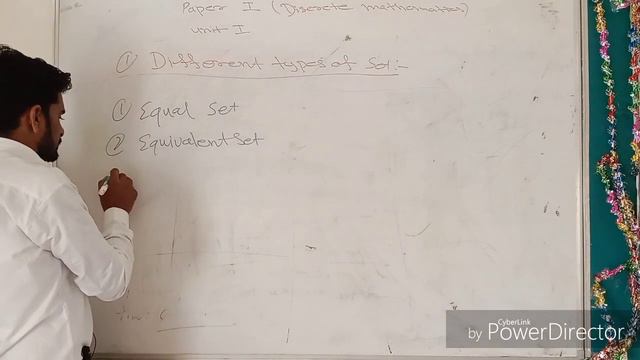 Paper I (Discrete mathematics)
unit I
① Different types of Set:-
① Equal Set
② Equivalent Set
CyberLink
by PowerDirector